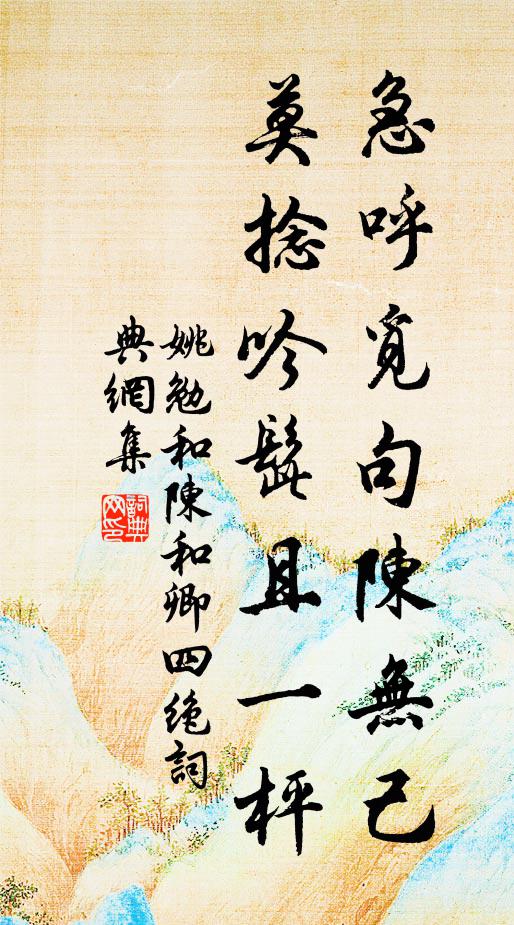 急呼覓句陳無己
莫捻吟髭且一枰
姚勉和陳和卿四絶詞
典網集
詞典
网印